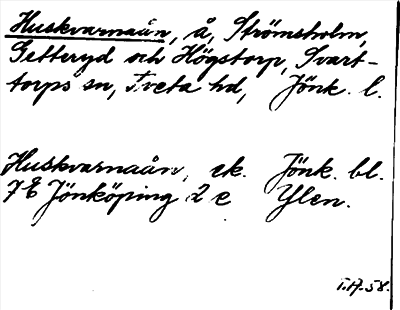 Huskvarnaån, å, Strömsholm,
Getteryd och Högstorp, Svart-
torps sn, Tveta hd, Jönk. l.
Huskvarnaån, ek. Jönk. bl.
7 E Jönköping 2 e Ylen.
T.H-58.